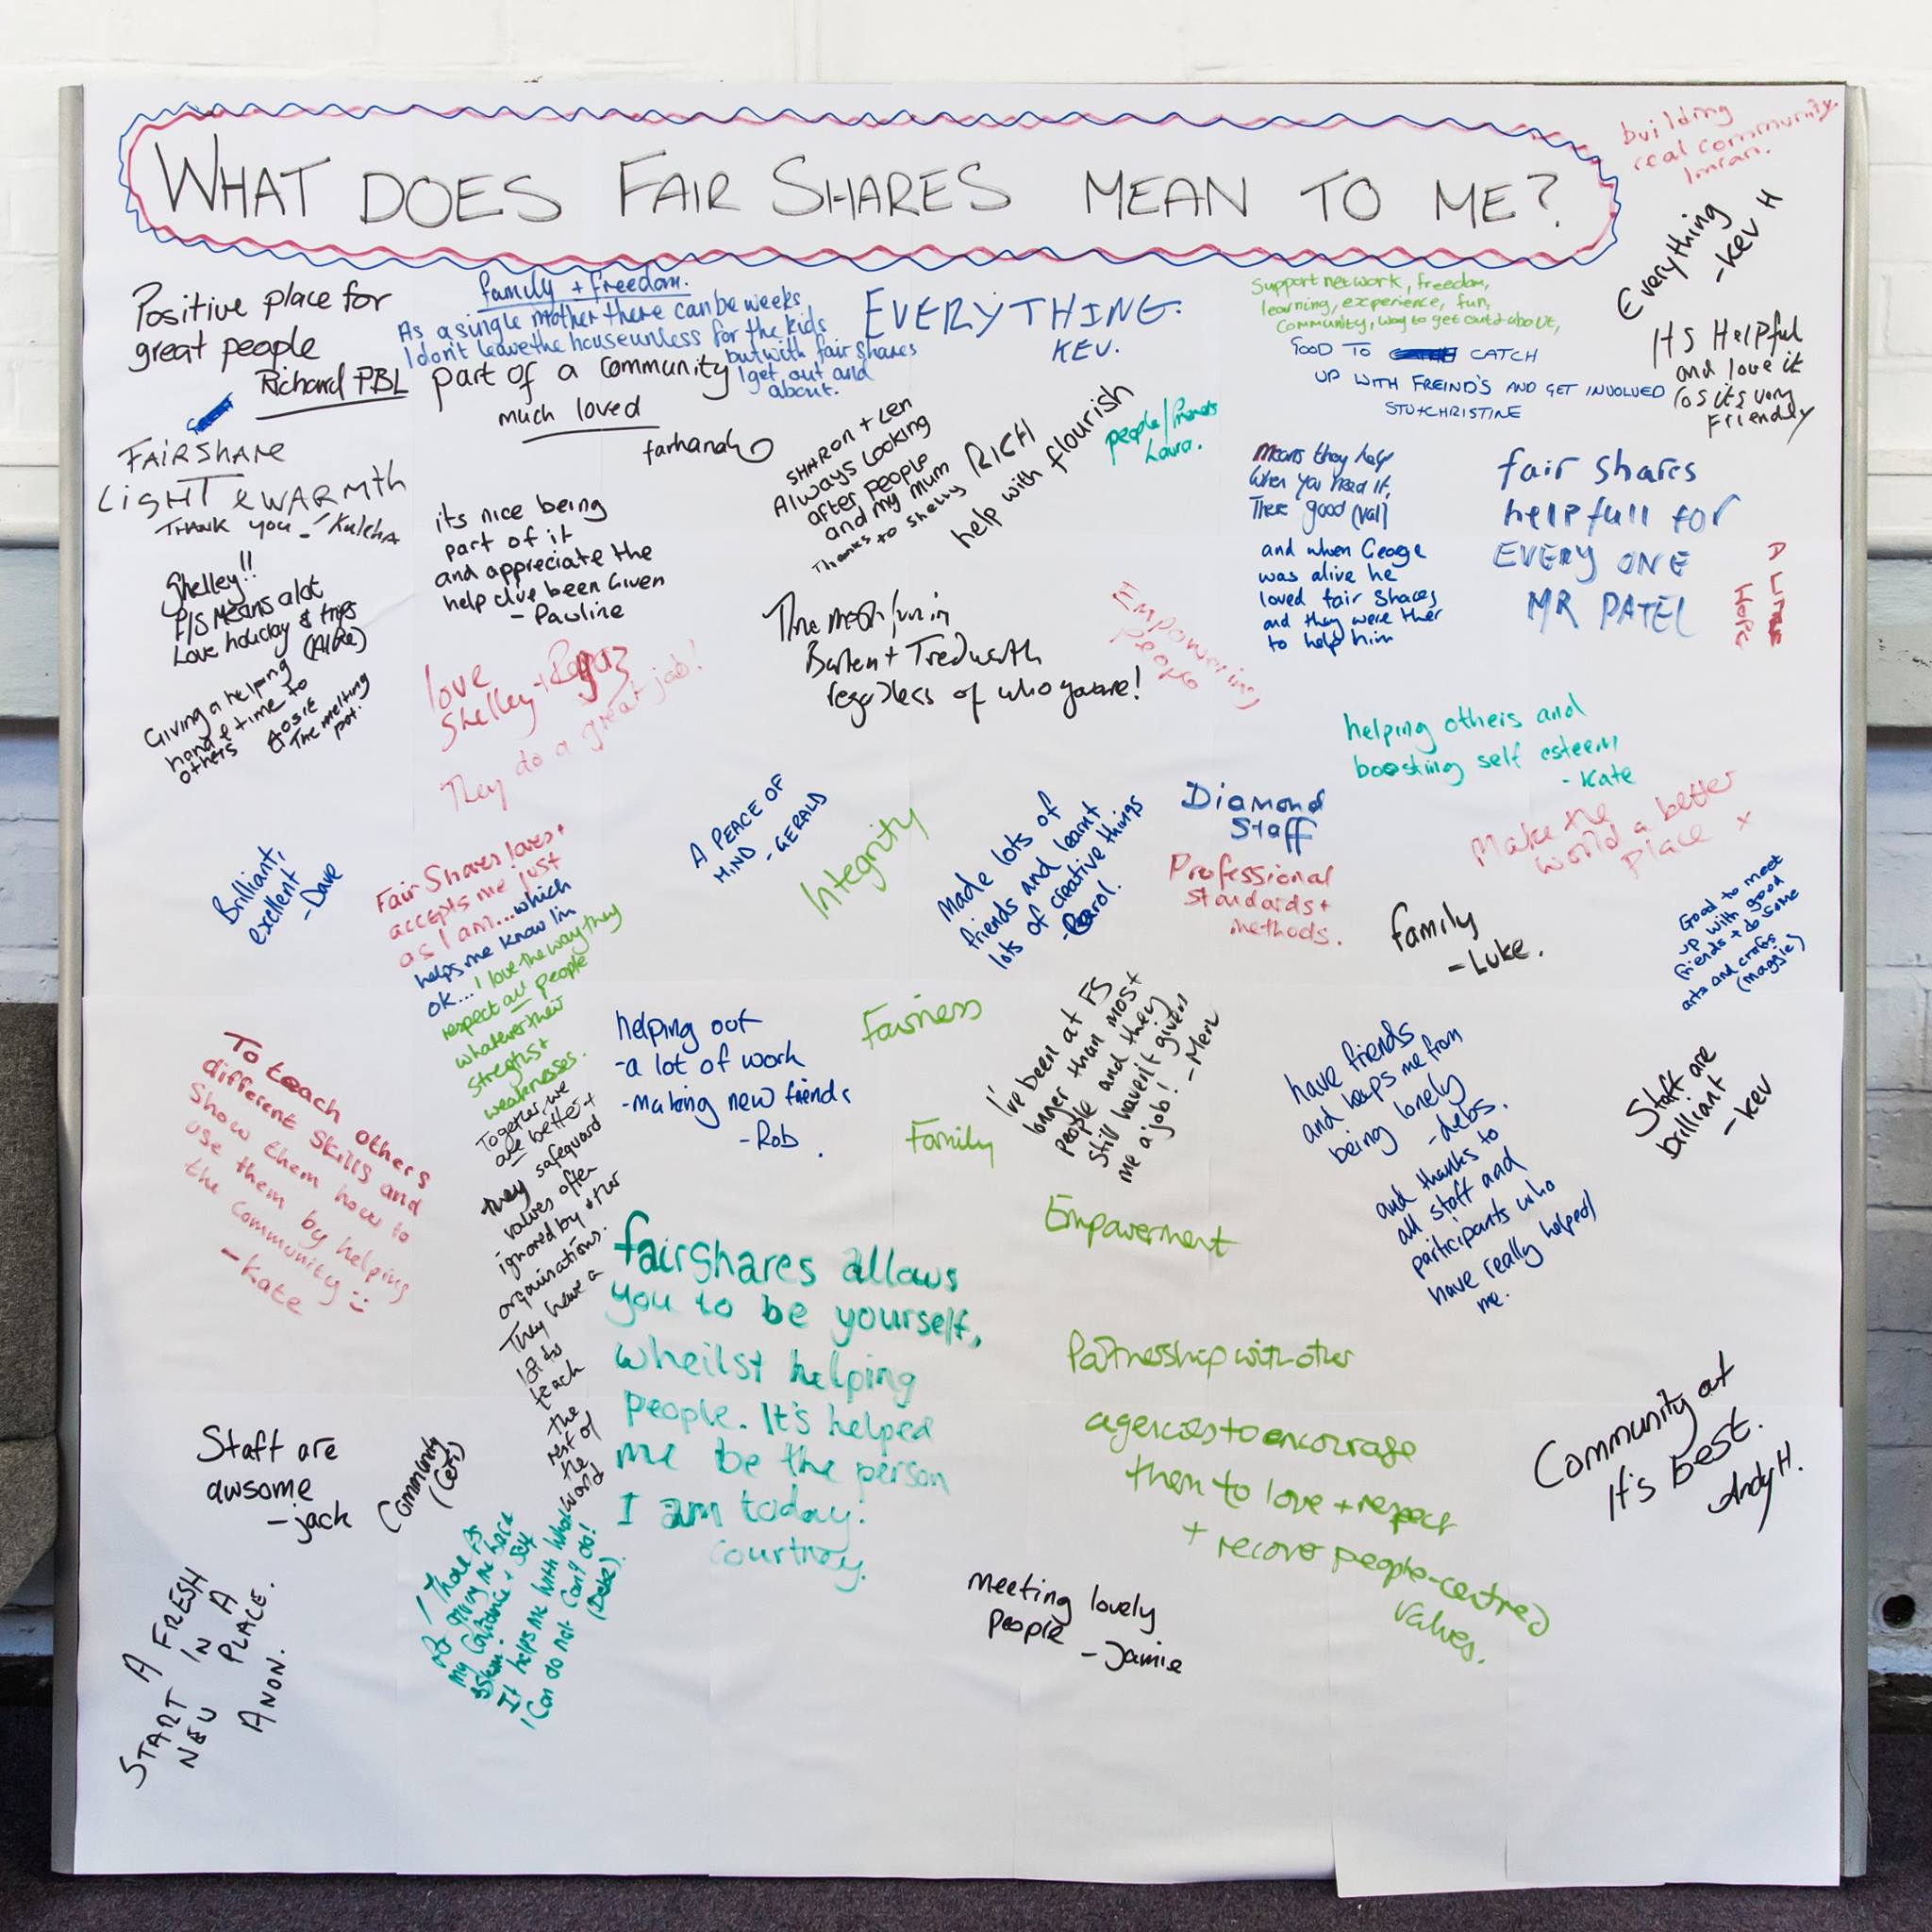 WHAT DOES FAIR SHARES MEAN TO ME?
building
real community.
Imran.
Everything
-Kev H
Positive place for
great people
Richard PBL
family + freedom.
As a single mother there can be weeks
I don't leave the house unless for the kids
but with fair shares
I get out and
about.
part of a community
much loved
farhanah
EVERYTHING.
KEV.
Support network, freedom,
learning, experience, fun,
community, way to get out & about,
GOOD TO CATCH
UP WITH FREIND'S AND GET INVOLVED
STU+CHRISTINE
ITS HElPful
and love it
Cos its very
Friendly
FAIRSHARE
LIGHT & WARMth
THANK you - Kulcha
its nice being
part of it
and appreciate the
help ive been Given
- Pauline
SHARON + Len
Always Looking
after People
and my mum
Thanks to Shelly
RICH
help with flourish
people/friends
Laura.
Means they help
When you need it.
There good (val)
and when George
was alive he
loved fair shares
and they were ther
to help him
fair shares
helpfull for
EVERY ONE
MR PATEL
A LITTLE
HOPE
Shelley!!
F/S Means alot
Love holiday & trips
Giving a helping
hand & time to
others
Rosie
The melting
pot.
love
Shelley +
They do a great job!
The most fun in
Barton + Tredworth
regardless of who you are!
Empowering
People
helping others and
boosting self esteem
- Kate
Make the
world a better
place x
Brilliant,
excellent
- Dave
Fair Shares loves +
accepts me just
as I am...which
helps me know I'm
ok... I love the way they
respect all people
whatever their
stregths +
weaknesses.
Together, we
are better +
they safeguard
values often
ignored by other
organisations.
They have a
lot to
teach
the
rest of
the
world
A PEACE OF
MIND - GERALD
Integrity
Made lots of
friends and learnt
lots of creative things
- Carol.
Diamond
Staff
Professional
standards +
methods.
family
- Luke.
Good to meet
up with good
friends + do some
arts and crafts
(maggie)
To teach others
different skills and
Show them how to
use them by helping
the community
- Kate
helping out
- a lot of work
- making new friends
- Rob
Fairness
Family
I've been at FS
longer than most
people and they
still haven't given
me a job! - Merv
have friends
and keeps me from
being lonely
- debs.
and thanks to
all staff and
participants who
have really helped
me.
Staff are
brilliant
- Kev
Empowerment
fairshares allows
you to be yourself,
wheilst helping
people. It's helped
me be the person
I am today!
Courtney.
Partnership with other
agencies to encourage
them to love + respect
+ recover people-centred
values.
Community at
It's best.
Andy H.
Staff are
awsome
- jack
Community
A FRESH
START IN A
NEW PLACE.
ANON.
for giving me back
my Confidence + Self
It helps me with what
I Can do not Can't do!
Meeting lovely
people
- Jamie